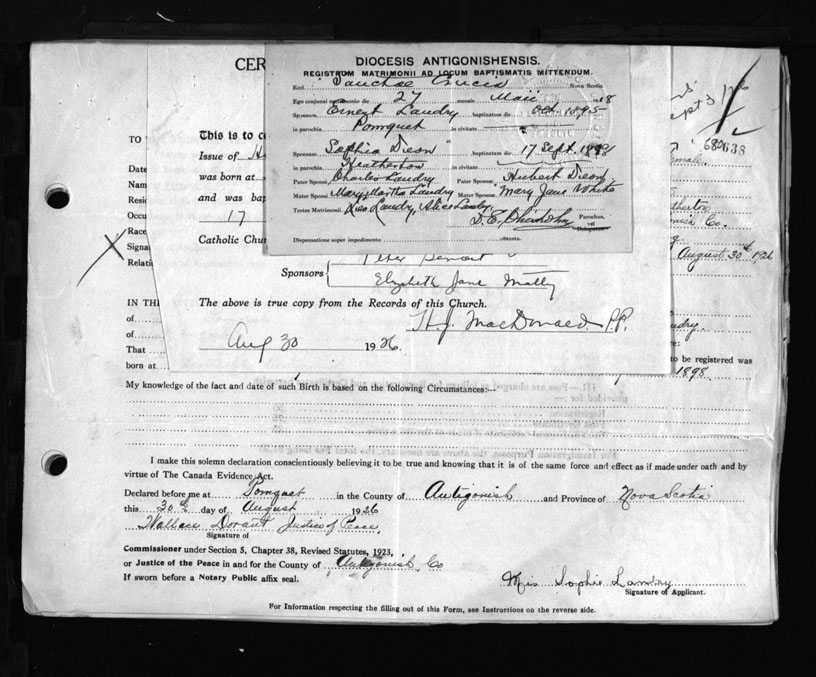 DIOCESIS ANTIGONISHENSIS.
REGISTRUM MATRIMONII AD LOCUM BAPTISMATIS MITTENDUM.
Eccl. Sanctae Crucis Nova Scotia
Ego conjunxi matrimonio die 27 mensis Maii 18
Sponsum Ernest Landry baptizatum die Oct 1895
in parochia Pomquet in civitate
Sponsam Sophia Deon baptizatam die 17 Sept. 1898
in parochia Heatherton in civitate
Pater Sponsi Charles Landry Pater Sponsae Hubert Deon
Mater Sponsi Mary Martha Landry Mater Sponsae Mary Jane White
Testes Matrimonii Leo Landry, Alice Landry
D. E. Chisholm Parochus.
vel
Delegatus.
Dispensatione super impedimento obtenta.
CER
This is to c
Issue of H
was born at
and was bap
17
Catholic Chu
Sponsors Peter Benoit
Elizabeth Jane
The above is true copy from the Records of this Church.
H. J. MacDonald P.P.
Aug 30 1926.
TO
Date
Name
Resid
Occu
Race
Signa
Relati
IN THE
of
of
That
born at
Sept 3/26
680638
female.
Heatherton
Co.
August 30th 1926
Landry.
re:
to be registered was
1898
My knowledge of the fact and date of such Birth is based on the following Circumstances:--
I make this solemn declaration conscientiously believing it to be true and knowing that it is of the same force and effect as if made under oath and by
virtue of The Canada Evidence Act.
Declared before me at Pomquet in the County of Antigonish and Province of Nova Scotia
this 30th day of August 1926
Wallace Dorant Justice of Peace
Signature of
Commissioner under Section 5, Chapter 38, Revised Statutes, 1923,
or Justice of the Peace in and for the County of Antigonish Co
If sworn before a Notary Public affix seal.
Mrs Sophie Landry
Signature of Applicant.
For Information respecting the filling out of this Form, see Instructions on the reverse side.